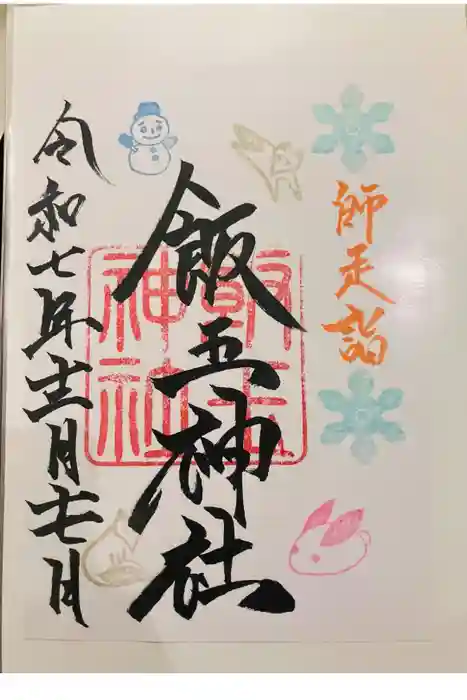 師走詣
飯玉神社
飯玉神社
令和七年十二月七日